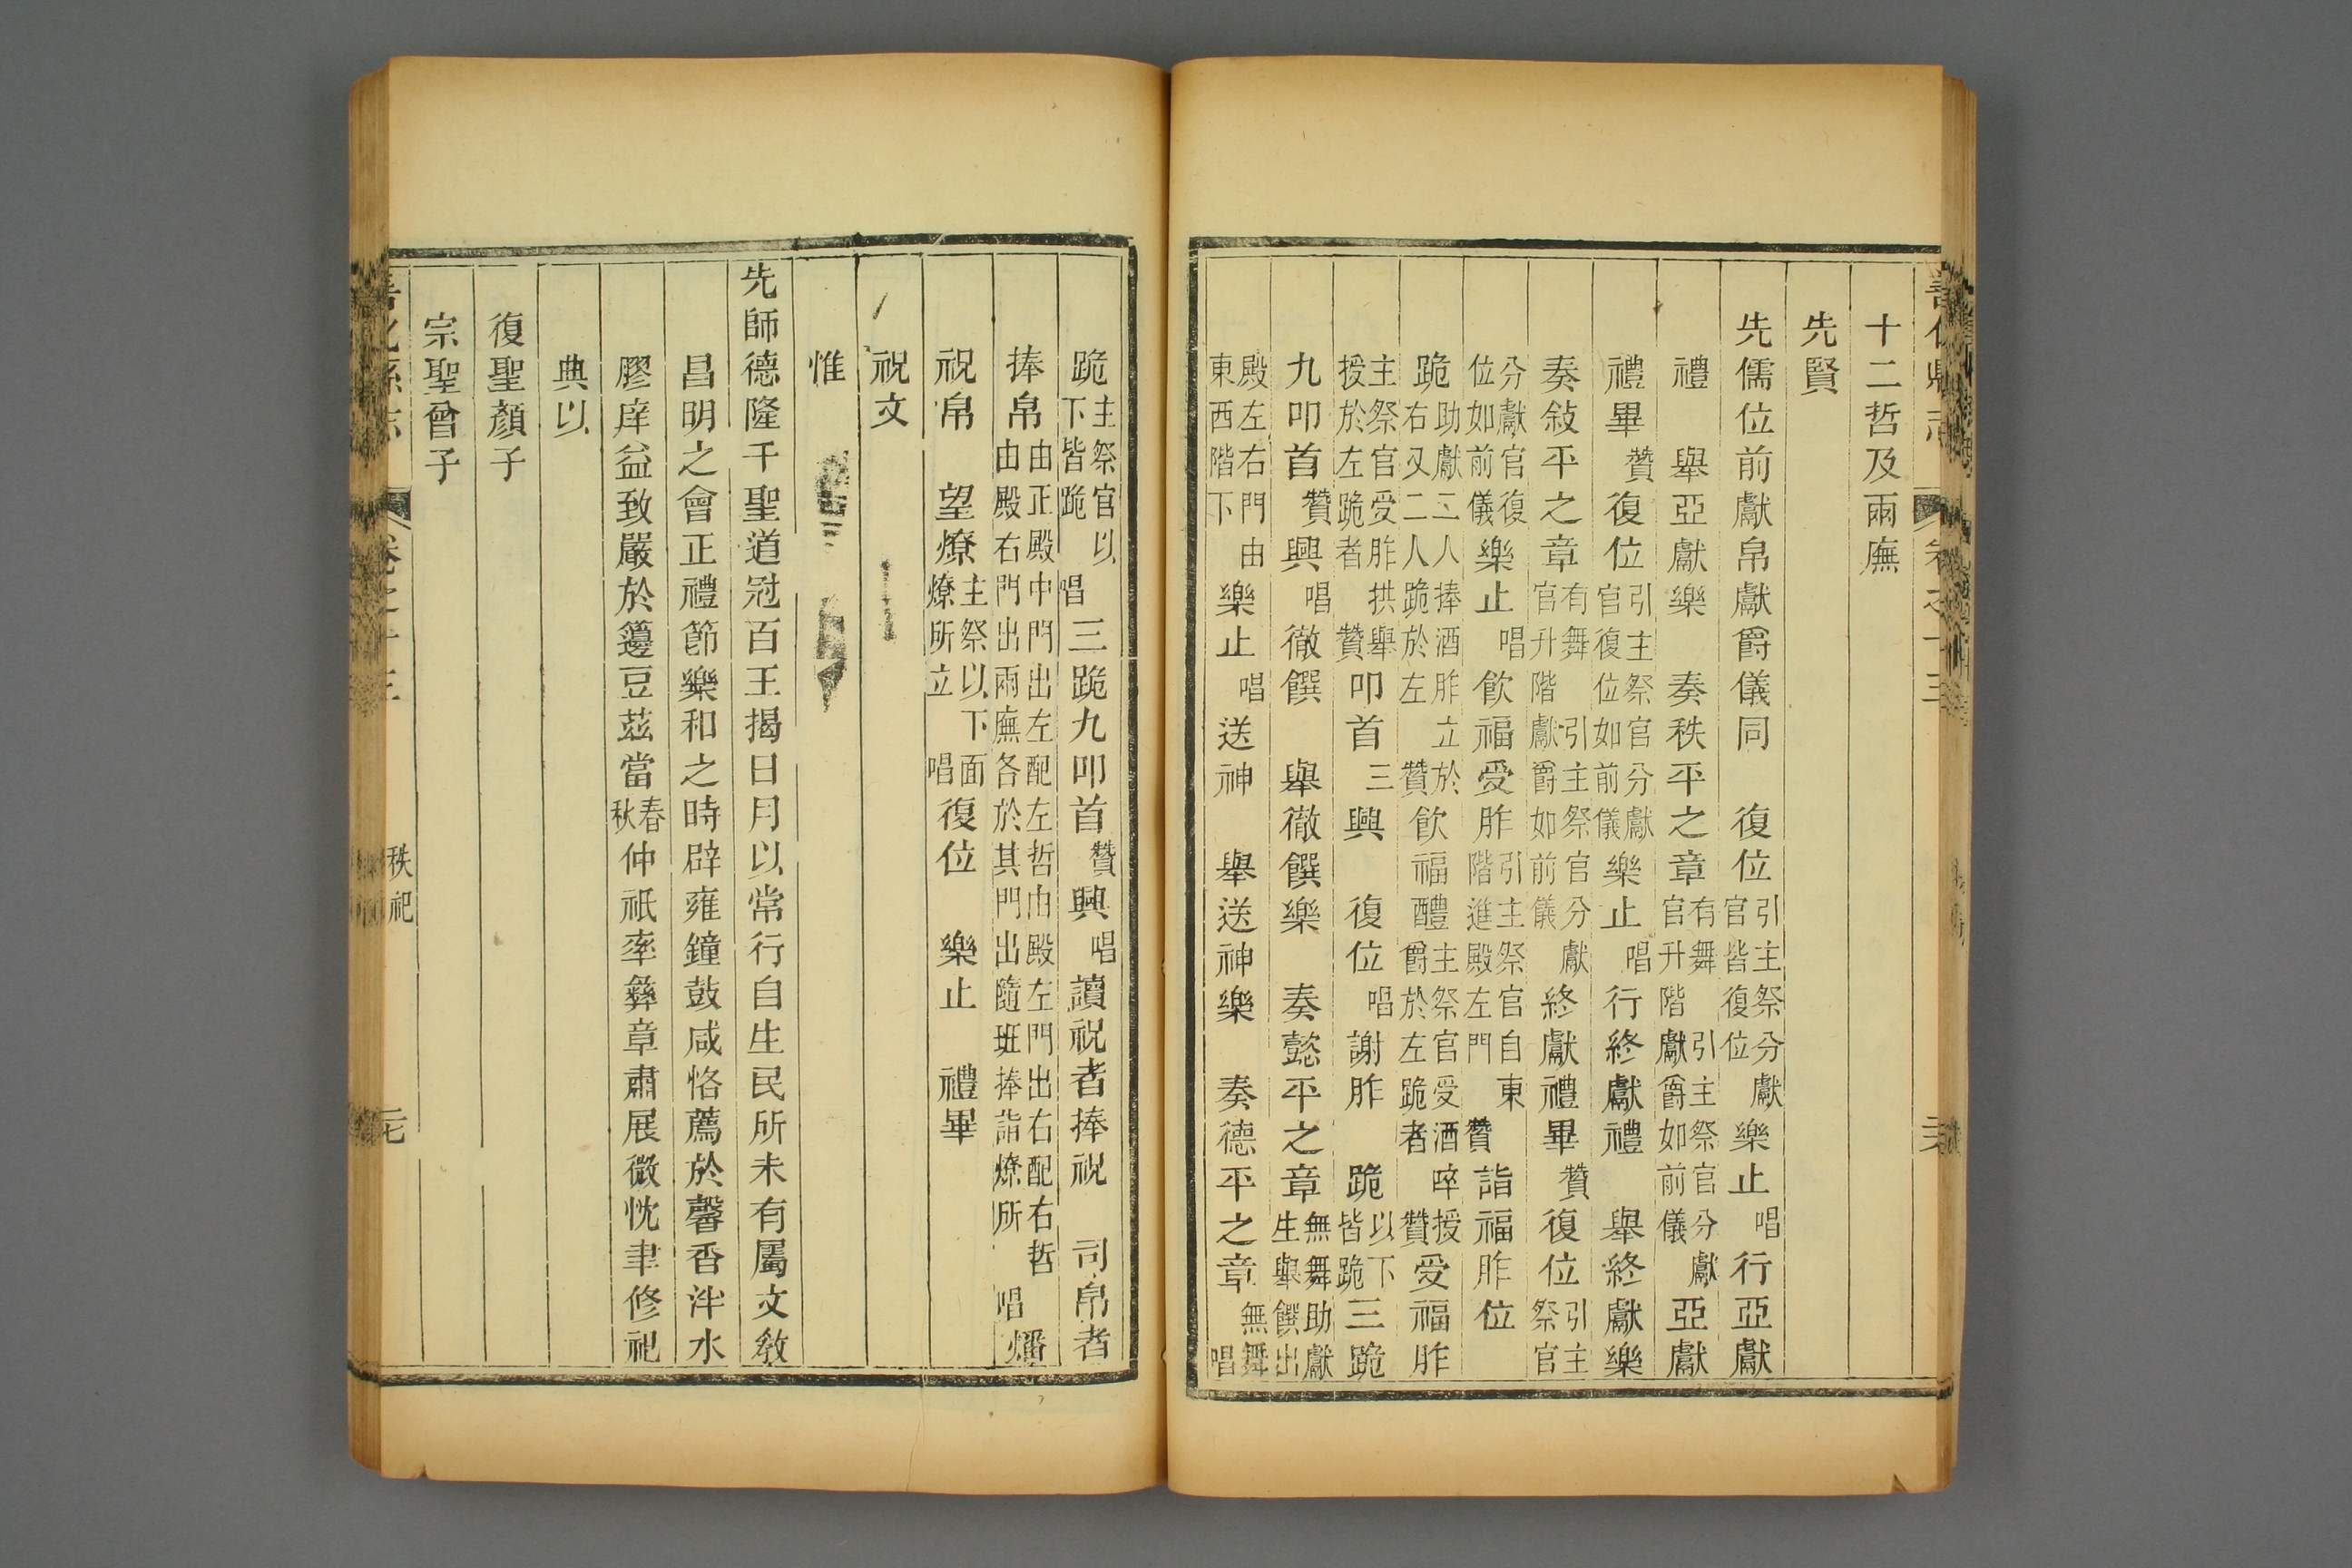 善化縣志 卷之十三
十二哲及兩廡
先賢
先儒位前獻帛獻爵儀同 復位引主祭分獻官皆復位樂止唱行亞獻
禮 舉亞獻樂 奏秩平之章有舞引主祭官分獻官升階獻爵如前儀亞獻
禮畢贊復位引主祭官分獻官復位如前儀樂止唱行終獻禮 舉終獻樂
奏敍平之章有舞引主祭官分獻官升階獻爵如前儀終獻禮畢贊復位引主祭官
分獻官復位如前儀樂止唱飲福受胙引主祭官自東階進殿左門贊詣福胙位
跪助獻二人捧酒胙立於右又二人跪於左贊飲福醴主祭官受酒啐授爵於左跪者贊受福胙
主祭官受胙拱舉授於左跪者贊叩首三興 復位唱謝胙 跪以下皆跪三跪
九叩首贊興唱徹饌 舉徹饌樂 奏懿平之章無舞助獻生舉饌出
殿左右門由東西階下樂止唱送神 舉送神樂 奏德平之章無舞唱
跪主祭官以下皆跪唱三跪九叩首贊興唱讀祝者捧祝 司帛者
捧帛由正殿中門出左配左哲由殿左門出右配右哲由殿右門出兩廡各於其門出隨班捧詣燎所唱燔
祝帛 望燎主祭以下面燎所立唱復位 樂止 禮畢
祝文
惟
先師德隆千聖道冠百王揭日月以常行自生民所未有屬文敎
昌明之會正禮節樂和之時辟雍鐘鼓咸恪薦於馨香泮水
膠庠益致嚴於籩豆茲當春秋仲祇率彝章肅展微忱聿修祀
典以
復聖顏子
宗聖曾子
善化縣志 卷之十三 秩祀 二七